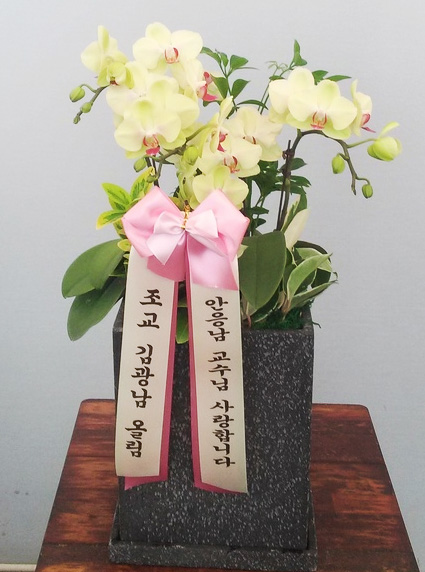 조교 김광남 올림
안응남 교수님 사랑합니다